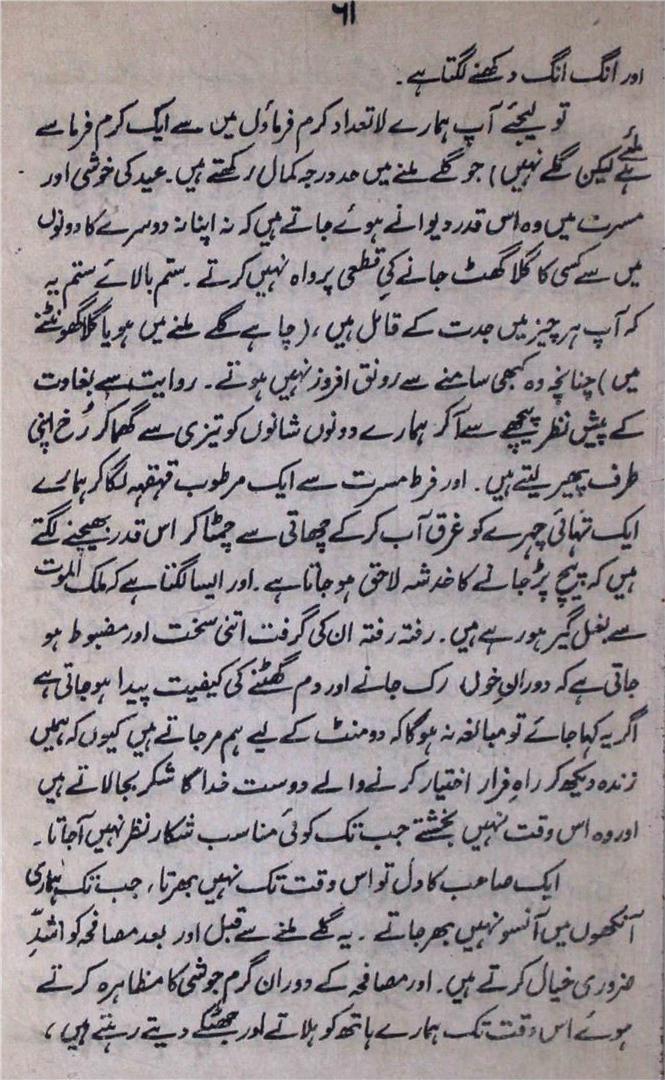 ۶۱
اور انگ انگ دکھنے لگتا ہے۔
تو لیجئے آپ ہمارے لاتعداد کرم فرماؤں میں سے ایک کرم فرما سے
ملئے لیکن گلے نہیں) جو گلے ملنے میں حد درجہ کمال رکھتے ہیں۔ عید کی خوشی اور
مسرت میں وہ اس قدر دیوانے ہوئے جاتے ہیں کہ نہ اپنا نہ دوسرے کا دونوں
میں سے کسی کا گلا گھٹ جانے کی قطعی پرواہ نہیں کرتے۔ ستم بالائے ستم یہ
کہ آپ ہر چیز میں جدت کے قائل ہیں، (چاہے گلے ملنے میں ہو یا گلا گھونٹنے
میں) چنانچہ وہ کبھی سامنے سے رونق افروز نہیں ہوتے۔ روایت سے بغاوت
کے پیش نظر پیچھے سے آکر ہمارے دونوں شانوں کو تیزی سے گھما کر رُخ اپنی
طرف پھیر لیتے ہیں۔ اور فرط مسرت سے ایک مرطوب قہقہہ لگا کر ہمارے
ایک تہائی چہرے کو غرق آب کر کے چھاتی سے چمٹا کر اس قدر بھینچنے لگتے
ہیں کہ پیچ پڑ جانے کا خدشہ لاحق ہو جاتا ہے۔ اور ایسا لگتا ہے کہ ملک الموت
سے بغل گیر ہو رہے ہیں۔ رفتہ رفتہ ان کی گرفت اتنی سخت اور مضبوط ہو
جاتی ہے کہ دورانِ خوں رک جانے اور دم گھٹنے کی کیفیت پیدا ہو جاتی ہے
اگر یہ کہا جائے تو مبالغہ نہ ہوگا کہ دو منٹ کے لیے ہم مر جاتے ہیں کیوں کہ ہمیں
زندہ دیکھ کر راہِ فرار اختیار کرنے والے دوست خدا کا شکر بجا لاتے ہیں
اور وہ اس وقت نہیں بخشتے جب تک کوئی مناسب شکار نظر نہیں آجاتا۔
ایک صاحب کا دل تو اس وقت تک نہیں بھرتا، جب تک ہماری
آنکھوں میں آنسو نہیں بھر جاتے۔ یہ گلے ملنے سے قبل اور بعد مصافحہ کو اشدّ
ضروری خیال کرتے ہیں۔ اور مصافحہ کے دوران گرم جوشی کا مظاہرہ کرتے
ہوئے اس وقت تک ہمارے ہاتھ کو ہلاتے اور جھٹکے دیتے رہتے ہیں،